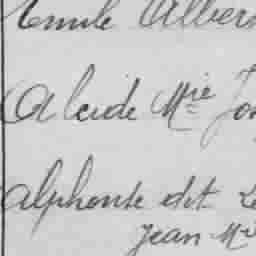 Emile Alber
Alcide Mie Jos
Alphonse dit Le
Jean-Mie